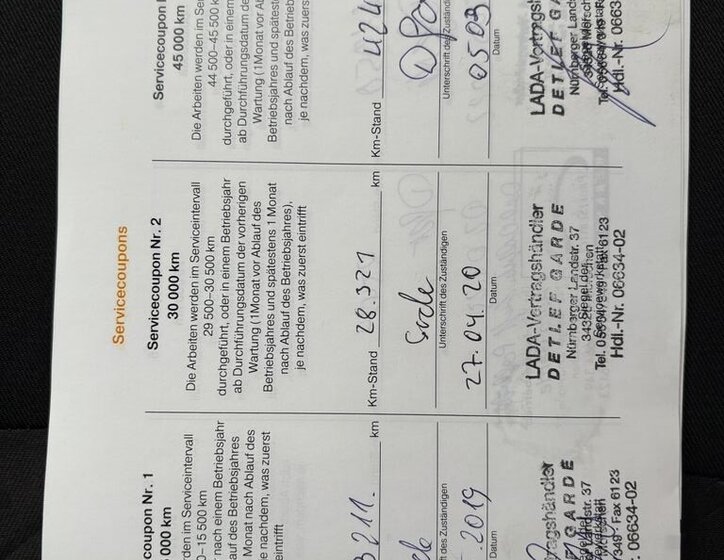 Servicecoupons
oupon Nr. 1
000 km
den im Serviceintervall
0–15 500 km
r nach einem Betriebsjahr
auf des Betriebsjahres
Monat nach Ablauf des
je nachdem, was zuerst
eintrifft
211. km
des Zuständigen
2019
Datum
rtragshändler
GARDE
ndstr. 37
049 · Fax 6123
06634-02
Servicecoupon Nr. 2
30 000 km
Die Arbeiten werden im Serviceintervall
29 500–30 500 km
durchgeführt, oder in einem Betriebsjahr
ab Durchführungsdatum der vorherigen
Wartung (1Monat vor Ablauf des
Betriebsjahres und spätestens 1 Monat
nach Ablauf des Betriebsjahres),
je nachdem, was zuerst eintrifft
Km-Stand 28.321 km
Unterschrift des Zuständigen
27.04.20
Datum
LADA-Vertragshändler
DETLEF GARDE
Nürnberger Landstr. 37
Siegel der
Servicewerkstatt
Fax 6123
Hdl.-Nr. 06634-02
Servicecoupon
45 000 km
Die Arbeiten werden im Se
44 500–45 500 k
durchgeführt, oder in einem
ab Durchführungsdatum de
Wartung (1Monat vor Abl
Betriebsjahres und spätest
nach Ablauf des Betriebs
je nachdem, was zuers
Km-Stand 424
Unterschrift des Zuständi
0503
Datum
LADA-Vertragshänd
DETLEF GARD
Nürnberger Landst
Hdl.-Nr. 0663